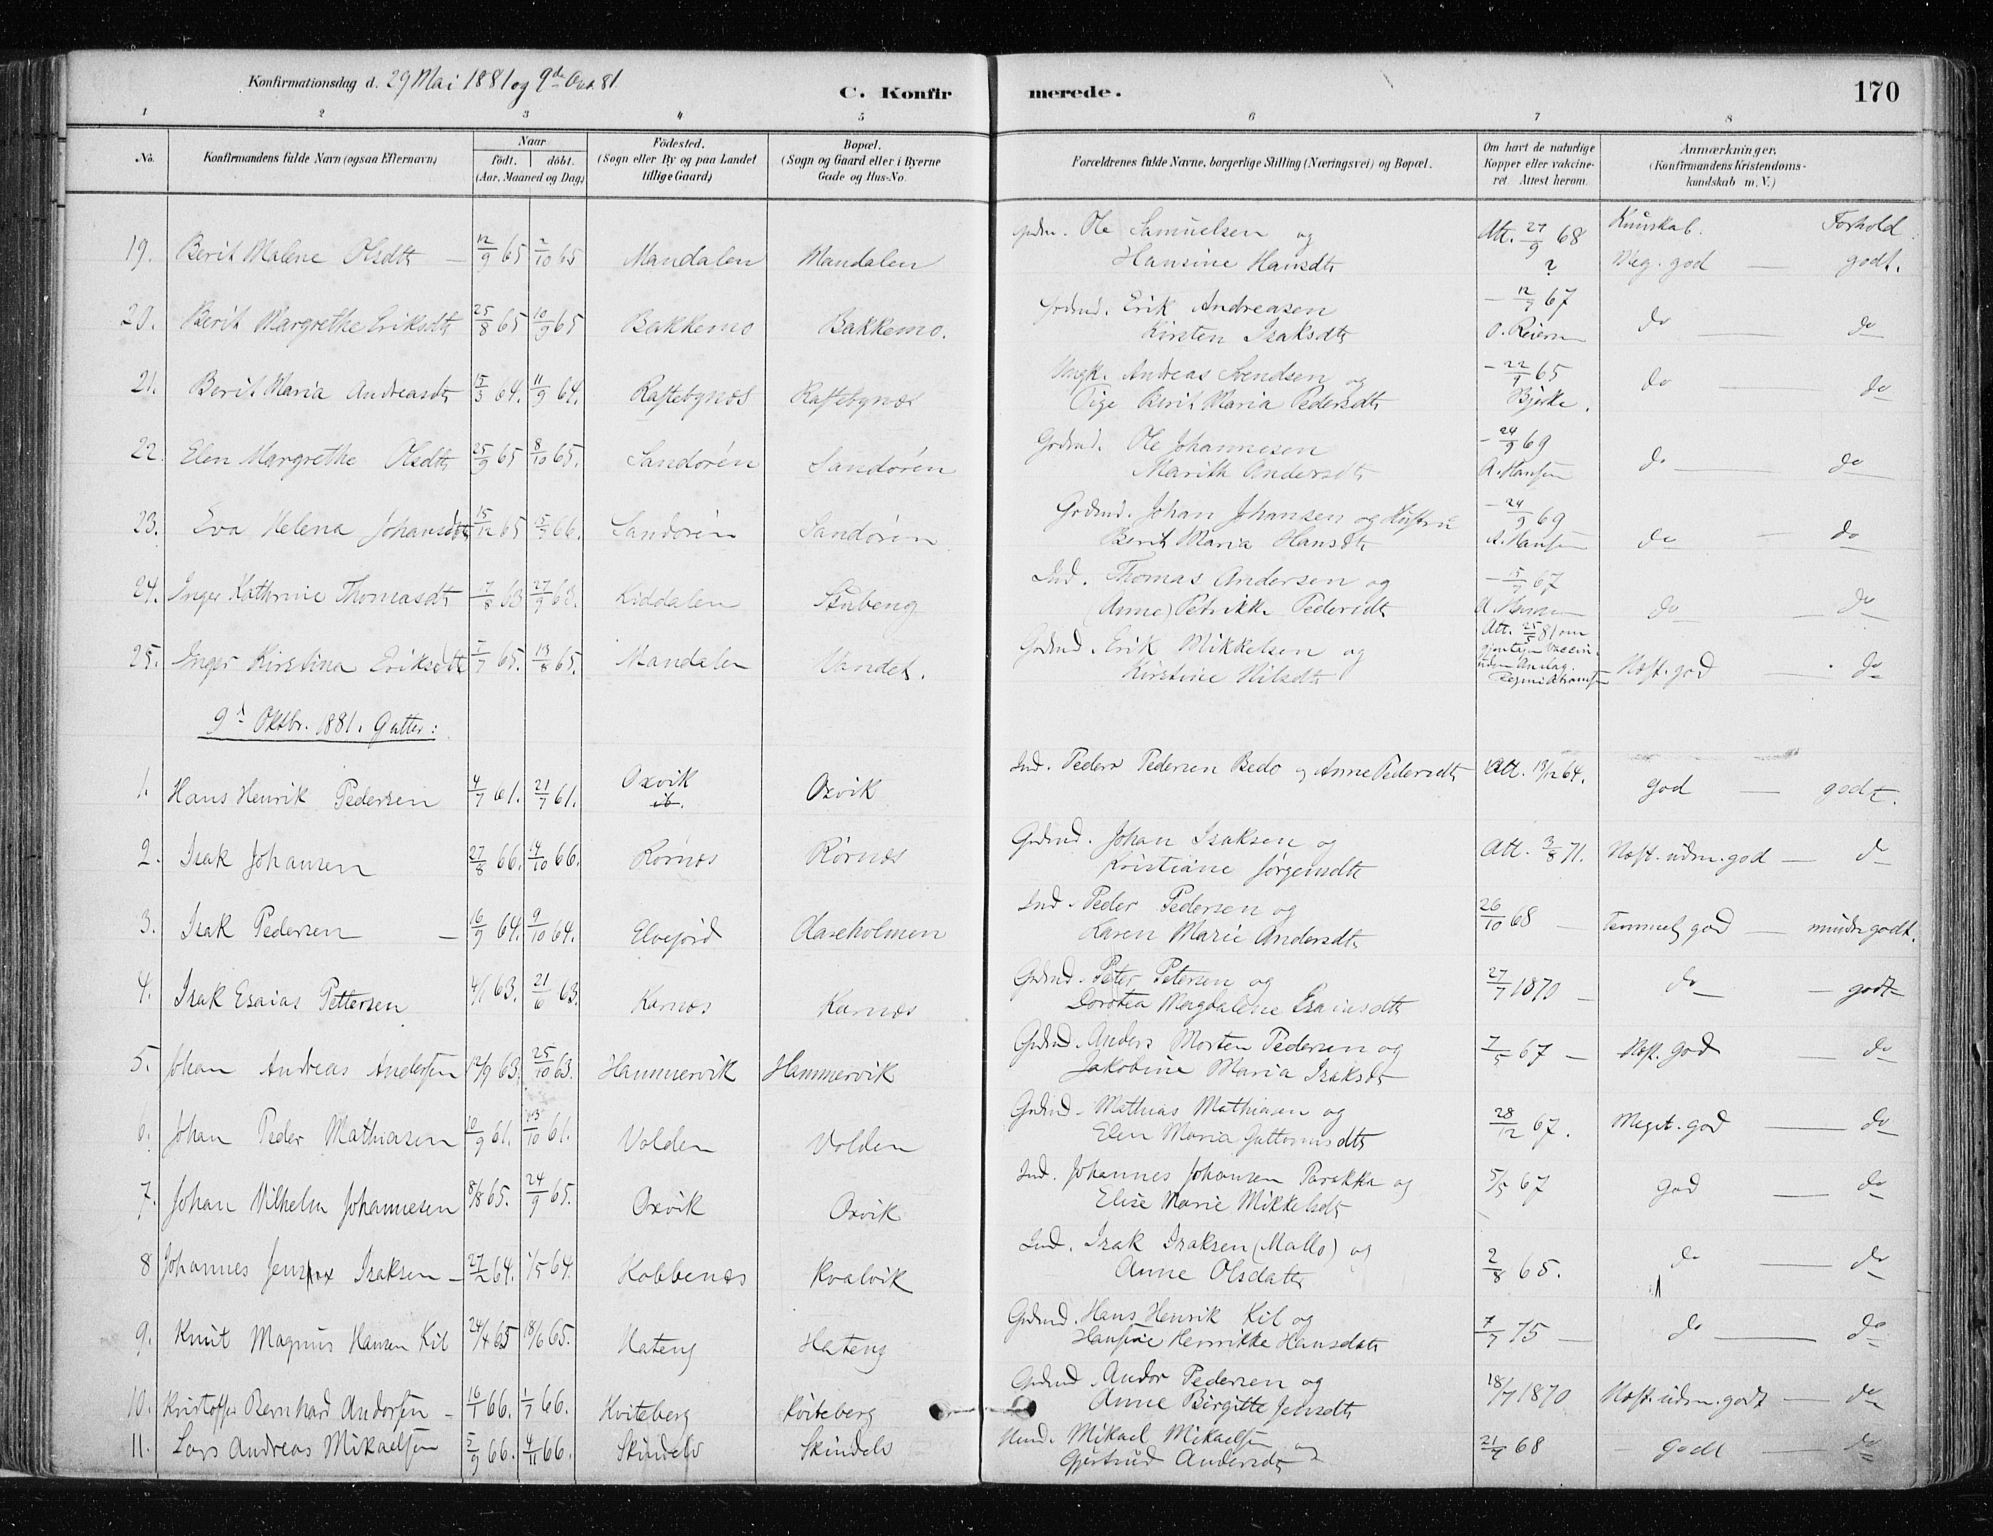 Konfirmationsdag d. 29 Mai 1881 og 9de Okt. 81.
C. Konfirmerede.
170
1 2 3 4 5 6 7 8
No. Konfirmandens fulde Navn (ogsaa Efternavn) Naar født. døbt. (Aar, Maaned og Dag) Fødested. (Sogn eller By og paa Landet tillige Gaard) Bopæl. (Sogn og Gaard eller i Byerne Gade og Hus-No. Forældrenes fulde Navne, borgerlige Stilling (Næringsvei) og Bopæl. Om havt de naturlige Kopper eller vakcineret. Attest herom. Anmærkninger. (Konfirmandens Kristendomskundskab m. V.)
Kunskab. Forhold.
19. Berit Malene Olsdtr 12/9 65 2/10 65 Mandalen Mandalen Ole Samuelsen og Att. 27/9 68
Hansine Hansdtr ? Meg. god — godt.
20. Berit Margrethe Eriksdtr 25/8 65 10/9 65 Bakkemo Bakkemo. Gdmd. Erik Andreasen — 12/9 67
Kirsten Isaksdtr O. Reiersen do — do
21. Berit Maria Andreasdtr 15/3 64. 11/9 64. Raftebgnæs Raftebgnæs Ungk. Andreas Svendsen og — 22/1 65
Pige Berit Maria Pedersdtr Bjerke. do — do
22. Elen Margrethe Olsdtr 25/9 65 8/10 65. Sandøren Sandøren Gdmd. Ole Johannesen — 24/9 69
Marith Andersdtr A. Hansen do — do
23. Eva Helena Johansdtr 15/12 65 66. Sandøren Sandøren Gdmd. Johan Johansen og Hustru — 24/9 69
Berit Maria Hansdtr A. Hansen do — do
24. Inger Kathrine Thomasdtr 63 27/9 63. Kiddalen Stubeng Ind. Thomas Andersen og — 67
(Anne) Petrikke Pedersdtr do — do
25. Inger Kirstina Eriksdtr 7/7 65. 13/8 65. Mandalen Vandet. Gdmd. Erik Mikkelsen og Att. 25/5 81 om
Kirstine Nilsdtr Næst. god — do
9d Oktbr. 1881. Gutter:
1. Hans Henrik Pedersen 4/7 61. 21/7 61. Oxvik Oxvik Ind. Peder Pedersen Bedo og Anne Pedersdtr Att. 13/12 64. god — godt.
2. Isak Johansen 27/8 66. 14/10 66. Rornæs Rornæs Gdmd. Johan Isaksen og Att. 3/8 71. Næst. udm. god — do
Kristiane Jørgensdtr
3. Isak Pedersen 16/9 64. 9/10 64. Elvejord Aaseholmen Ind. Peder Pedersen og 26/10 68 — Temmel. god — mindre godt.
Karen Marie Andersdtr
4. Isak Esaias Pettersen 4/1 63. 21/6 63. Karnæs Karnæs Gdmd. Peter Petersen og 27/7 1870 — do — godt
Dorotea Magdalene Esaiasdtr
5. Johan Andreas Andersen 12/9 63. 25/10 63. Hammervik Hammervik Gdmd. Anders Morten Pedersen og 7/5 67 — Næst. god — do
Jakobine Maria Isaksdtr
6. Johan Peder Mathiasen 10/9 61. 13/10 61. Volden Volden Gdmd. Mathias Mathiasen og 28/12 67. Meget. god — do
Elen Maria Guttormsdtr
7. Johan Vilhelm Johannesen 8/8 65. 24/9 65. Oxvik Oxvik Ind. Johannes Johansen Parakka og 5/5 67 god — do
Elise Marie Mikkelsdtr
8 Johannes Isaksen — 27/2 64. 1/5 64. Kobbenæs Kvalvik Ind. Isak Isaksen (Mallo) og 2/8 65. do — do
Anne Olsdatr
9. Knut Magnus Hansen Kil 24/4 65 18/6 65. Hateng Hateng Gdmd. Hans Henrik Kil og 7/7 75 — do — do
Hansine Henrikke Hansdatr
10. Kristoffer Bernhard Andorsen — 16/1 66. 1/7 66. Kviteberg Kviteberg Gdmd. Andor Pedersen og 18/7 1870 Næst. udm. godt — do
Anne Birgitte Jensdtr
11. Lars Andreas Mikaelsen 5/9 66. 4/11 66. Skindelv Skindelv Mikael Mikaelsen og 68 godt — do
Gjertrud Andersdtr